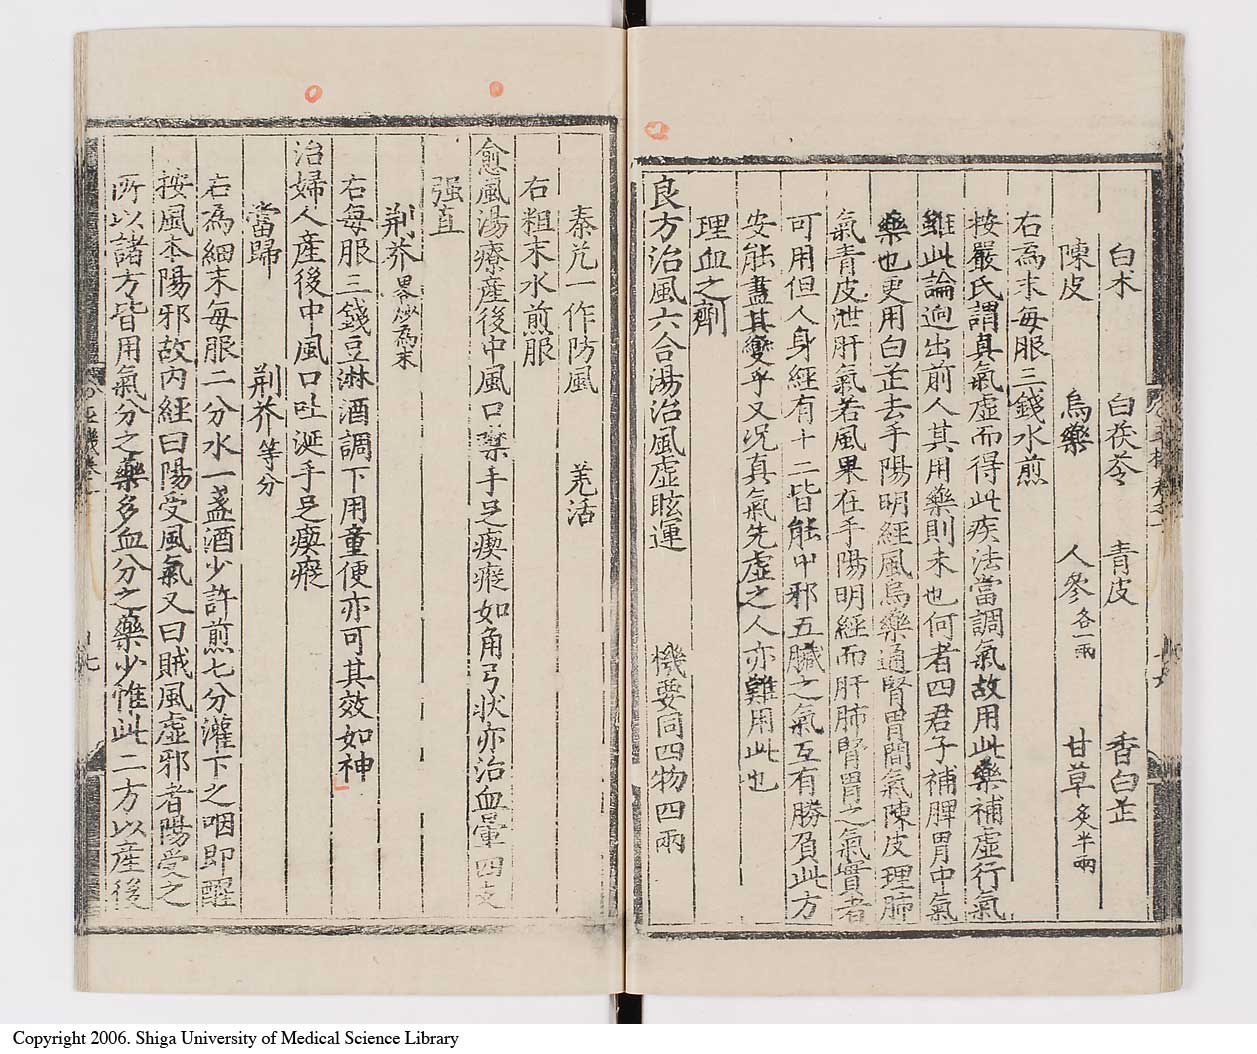 白术 白茯苓 青皮 香白芷
陳皮 烏藥 人參各一兩 甘草炙半兩
右爲末每服三錢水煎
按嚴氏謂真氣虛而得此疾法當調氣故用此藥補虛行氣
雖此論逈出前人其用藥則未也何者四君子補脾胃中氣
藥也更用白芷去手陽明經風烏藥通腎胃間氣陳皮理肺
氣青皮泄肝氣若風果在手陽明經而肝肺腎胃之氣實者
可用但人身經有十二皆能中邪五臟之氣互有勝負此方
安能盡其變乎又况真氣先虛之人亦難用此也
理血之劑
良方治風六合湯治風虛眩運 機要同四物四兩
秦艽一作防風 羌活
右粗末水煎服
愈風湯療産後中風口噤手足瘈瘲如角弓狀亦治血暈四支
强直
荆芥畧炒爲末
右每服三錢豆淋酒調下用童便亦可其效如神
治婦人産後中風口吐涎手足瘈瘲
當歸 荆芥等分
右爲細末每服二分水一盞酒少許煎七分灌下之咽即醒
按風本陽邪故内經曰陽受風氣又曰賊風虛邪者陽受之
所以諸方皆用氣分之藥多血分之藥少惟此二方以産後
Copyright 2006. Shiga University of Medical Science Library